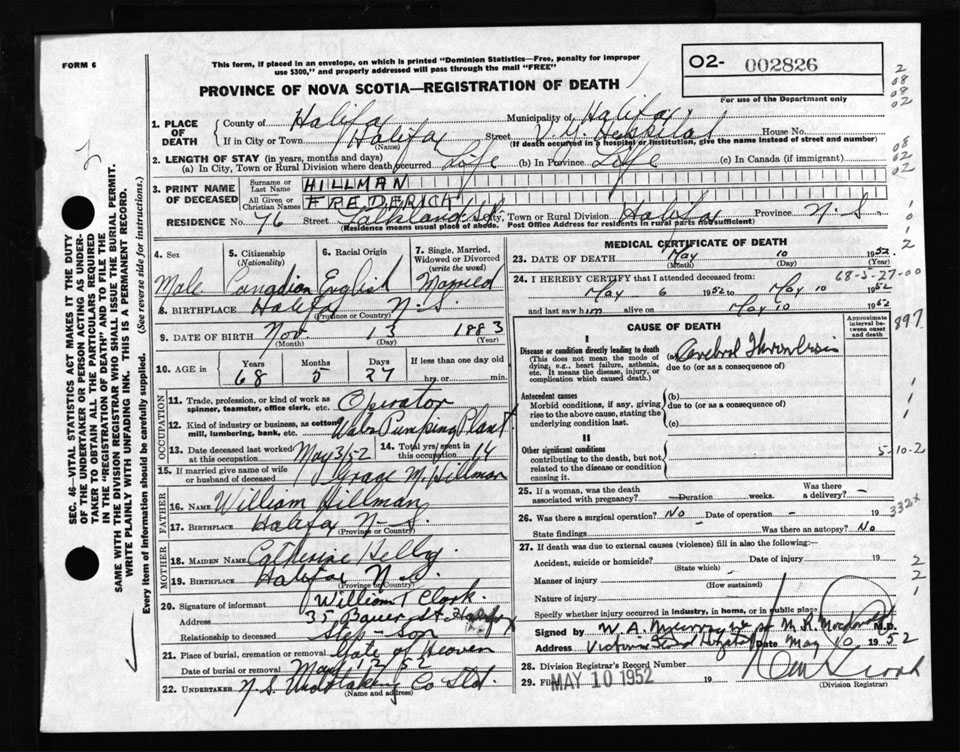 FORM 6
This form, if placed in an envelope, on which is printed "Dominion Statistics—Free, penalty for improper
use $300," and properly addressed will pass through the mail "FREE"
O2- 002826
For use of the Department only
PROVINCE OF NOVA SCOTIA—REGISTRATION OF DEATH
2
08
02
08
02
02
1. PLACE OF DEATH County of Halifax Municipality of Halifax
If in City or Town Halifax Street V. G. Hospital House No.
(Name) (If death occurred in a hospital or institution, give the name instead of street and number)
2. LENGTH OF STAY (in years, months and days)
(a) In City, Town or Rural Division where death occurred Life (b) In Province Life (c) In Canada (if immigrant)
3. PRINT NAME OF DECEASED
Surname or Last Name HILLMAN
All Given or Christian Names FREDERICK
RESIDENCE No. 76 Street Falkland St. City, Town or Rural Division Halifax Province N.S.
(Residence means usual place of abode. Post Office Address for residents in rural parts not sufficient)
4. Sex Male
5. Citizenship (Nationality) Canadian
6. Racial Origin English
7. Single, Married, Widowed or Divorced (write the word) Married
8. BIRTHPLACE Halifax N.S.
(Province or Country)
9. DATE OF BIRTH Nov. 13 1883
(Month) (Day) (Year)
10. AGE in Years 68 Months 5 Days 27 If less than one day old hrs. or min.
OCCUPATION
11. Trade, profession, or kind of work as spinner, teamster, office clerk, etc. Operator
12. Kind of industry or business, as cotton mill, lumbering, bank, etc. Water Pumping Plant
13. Date deceased last worked at this occupation May 3/52 14. Total yrs. spent in this occupation 14
15. If married give name of wife or husband of deceased Grace M. Hillman
FATHER
16. NAME William Hillman
17. BIRTHPLACE Halifax N.S.
(Province or Country)
MOTHER
18. MAIDEN NAME Catherine
19. BIRTHPLACE Halifax N.S.
(Province or Country)
20. Signature of informant William T Clark
Address 35 Bauer St Halifax
Relationship to deceased Step-son
21. Place of burial, cremation or removal Gate of Heaven
Date of burial or removal May 12/52
22. UNDERTAKER N.S. Undertaking Co Ltd.
(Name and address)
MEDICAL CERTIFICATE OF DEATH
23. DATE OF DEATH May 10 1952
(Month) (Day) (Year)
24. I HEREBY CERTIFY that I attended deceased from: 68-5-27-00
May 6 1952 to May 10 1952
and last saw him alive on May 10 1952
CAUSE OF DEATH
Approximate interval between onset and death
897
I
Disease or condition directly leading to death (a) Cerebral Thrombosis
(This does not mean the mode of dying, e.g., heart failure, asthenia, etc. It means the disease, injury, or complication which caused death.)
due to (or as a consequence of)
Antecedent causes
Morbid conditions, if any, giving rise to the above cause, stating the underlying condition last.
(b)
due to (or as a consequence of)
(c)
II
Other significant conditions
contributing to the death, but not, related to the disease or condition causing it.
5-10-2
25. If a woman, was the death associated with pregnancy? Duration weeks. Was there a delivery?
332x
26. Was there a surgical operation? No Date of operation 19
State findings Was there an autopsy? No
27. If death was due to external causes (violence) fill in also the following:—
Accident, suicide or homicide? Date of injury 19
(State which)
Manner of injury
(How sustained)
Nature of injury
Specify whether injury occurred in industry, in home, or in public place
Signed by W. A. Murray M.D.
Address Victoria Hospital Date May 10 1952
28. Division Registrar's Record Number
29. Filed MAY 10 1952 19
(Division Registrar)
SEC. 46—VITAL STATISTICS ACT MAKES IT THE DUTY
OF THE UNDERTAKER OR PERSON ACTING AS UNDERTAKER
TO OBTAIN ALL THE PARTICULARS REQUIRED
IN THE "REGISTRATION OF DEATH" AND TO FILE THE
SAME WITH THE DIVISION REGISTRAR WHO SHALL ISSUE THE BURIAL PERMIT.
WRITE PLAINLY WITH UNFADING INK. THIS IS A PERMANENT RECORD.
Every item of information should be carefully supplied. (See reverse side for instructions.)